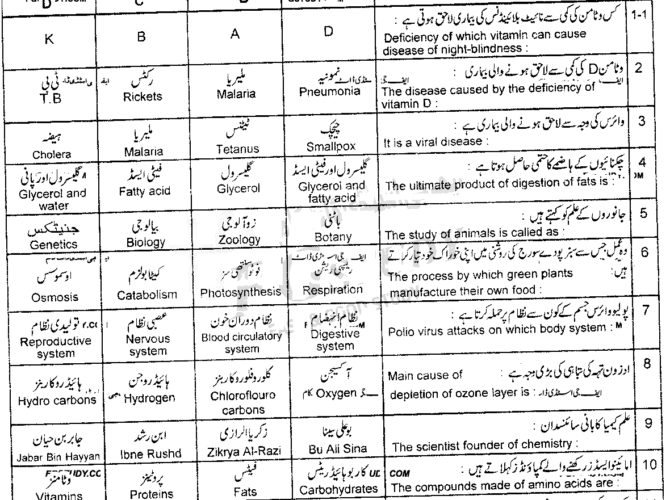 D C
کس وٹامن کی کمی سے نائیٹ بلائینڈنس کی بیماری لاحق ہوتی ہے : 1-1
Deficiency of which vitamin can cause
disease of night-blindness :
K B A D
وٹامن D کی کمی سے لاحق ہونے والی بیماری : 2
The disease caused by the deficiency of
vitamin D :
ٹی بی رکٹس ملیریا نمونیہ
T.B Rickets Malaria Pneumonia
وائرس کی وجہ سے لاحق ہونے والی بیماری ہے : 3
It is a viral disease :
ہیضہ ملیریا ٹیٹنس چیچک
Cholera Malaria Tetanus Smallpox
چکنائیوں کے ہاضمے کا حتمی حاصل ہوتا ہے : 4
The ultimate product of digestion of fats is :
گلیسرول اور پانی فیٹی ایسڈ گلیسرول گلیسرول اور فیٹی ایسڈ
Glycerol and water Fatty acid Glycerol Glycerol and fatty acid
جانوروں کے علم کو کہتے ہیں : 5
The study of animals is called as :
جنیٹکس بیالوجی زوآلوجی باٹنی
Genetics Biology Zoology Botany
وہ عمل جس سے سبز پودے سورج کی روشنی میں اپنی خوراک خود تیار کرتے ہیں: 6
The process by which green plants
manufacture their own food :
اوسموسس کیٹابولزم فوٹو سنتھی سز ریسپی ریشن
Osmosis Catabolism Photosynthesis Respiration
پولیو وائرس جسم کے کون سے نظام پر حملہ کرتا ہے : 7
Polio virus attacks on which body system :
تولیدی نظام عصبی نظام نظام دوران خون نظام انہضام
Reproductive system Nervous system Blood circulatory system Digestive system
اوزون تہہ کی تباہی کی بڑی وجہ ہے : 8
Main cause of
depletion of ozone layer is :
ہائیڈروکاربنز ہائیڈروجن کلوروفلوروکاربنز آکسیجن
Hydro carbons Hydrogen Chloroflouro carbons Oxygen
علم کیمیا کا بانی سائنسدان : 9
The scientist founder of chemistry :
جابر بن حیان ابن رشد زکریا الرازی بوعلی سینا
Jabar Bin Hayyan Ibne Rushd Zikrya Al-Razi Bu Aii Sina
امائینو ایسڈز رکھنے والے کمپاؤنڈز کہلاتے ہیں : 10
The compounds made of amino acids are :
وٹامنز پروٹینز فیٹس کاربوہائیڈریٹس
Vitamins Proteins Fats Carbohydrates